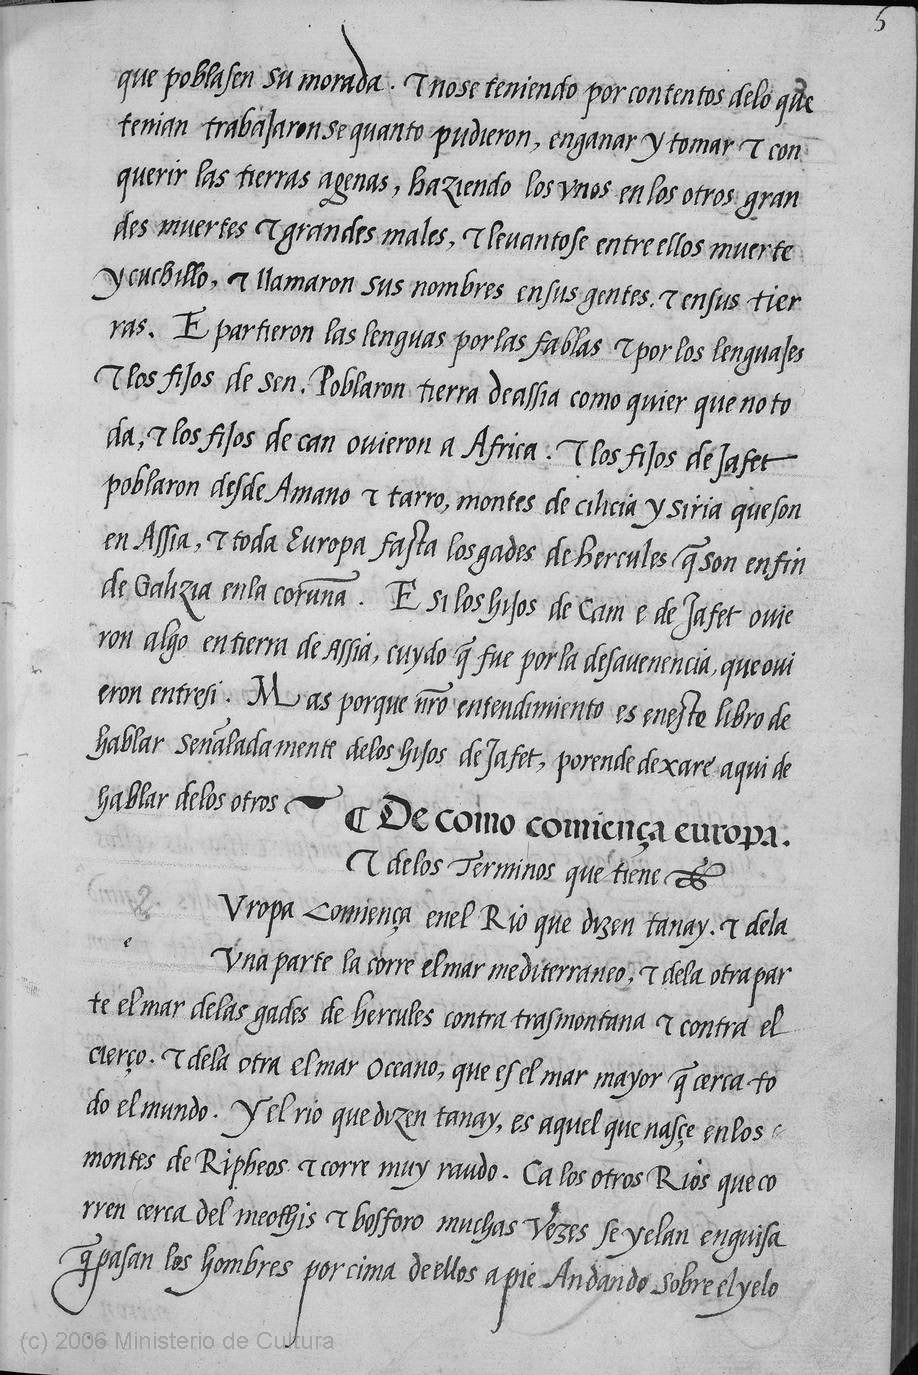 5
que poblasen su morada. τ no se teniendo por contentos delo que
tenian trabajaronse quanto pudieron, enganar y tomar τ con
querir las tierras agenas, haziendo los vnos en los otros gran
des muertes τ grandes males, τ levantose entre ellos muerte
y cuchillo, τ llamaron sus nombres en sus gentes. τ en sus tier
ras. E partieron las lenguas por las fablas τ por los lenguajes
τ los fijos de sen. Poblaron tierra de assia como quier que no to
da, τ los fijos de can ovieron a Africa. τ los fijos de Jafet
poblaron desde Amano τ tarro, montes de cilicia y siria que son
en Assia, τ toda Europa fasta los gades de hercules q̃ son en fin
de Galizia en la coruña. E si los hijos de Cam e de Jafet ovie
ron algo en tierra de assia, cuydo q̃ fue por la desavenencia, que ovi
eron entre si. Mas porque nr̃o entendimiento es en este libro de
hablar señaladamente delos hijos de Jafet, porende dexaré aqui de
hablar delos otros
¶ De como comiença europa.
τ delos Terminos que tiene
e Vropa Comiença enel Rio que dizen tanay. τ dela
Vna parte la corre el mar mediterraneo, τ dela otra par
te el mar delas gades de hercules contra trasmontana τ contra el
cierço. τ dela otra el mar Oceano, que es el mar mayor q̃ cerca to
do el mundo. Y el rio que dizen tanay, es aquel que nasçe en los
montes de Ripheos τ corre muy raudo. Ca los otros Rios que co
rren cerca del meothis τ bosforo muchas Vezes se yelan en guisa
q̃ pasan los hombres por cima de ellos a pie Andando sobre el yelo
(c) 2006 Ministerio de Cultura